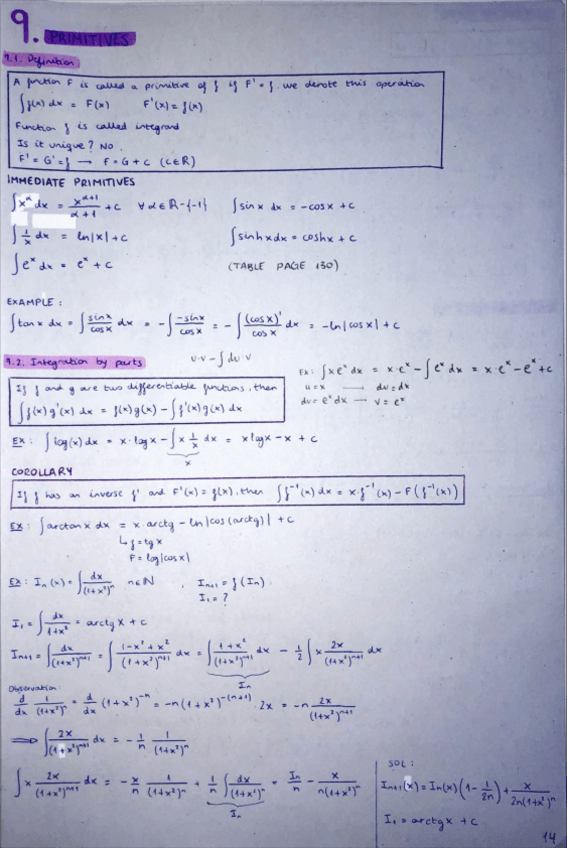 9. PRIMITIVES
9.1. Definition
A function F is called a primitive of f if F' = f. we denote this operation
∫f(x) dx = F(x) F'(x) = f(x)
Function f is called integrand
Is it unique? No.
F' = G' = f → F = G + C (C∈ℝ)
IMMEDIATE PRIMITIVES
∫x^α dx = x^(α+1)/(α+1) + C ∀α∈ℝ-{-1} ∫sinx dx = -cosx + C
∫1/x dx = ln|x| + C ∫sinhxdx = coshx + C
∫e^x dx = e^x + C (TABLE PAGE 130)
EXAMPLE:
∫tanx dx = ∫sinx/cosx dx = -∫-sinx/cosx = -∫(cosx)'/cosx dx = -ln|cosx| + C
9.2. Integration by parts
u·v - ∫du·v
If f and g are two differentiable functions, then
∫f(x)g'(x) dx = f(x)g(x) - ∫f'(x)g(x) dx
Ex: ∫xe^x dx = x·e^x - ∫e^x dx = x·e^x - e^x + C
u = x → du = dx
dv = e^x dx → v = e^x
Ex: ∫log(x) dx = x·logx - ∫x 1/x dx = xlogx - x + C
x
COROLLARY
If f has an inverse f' and F'(x) = f(x), then ∫f^-1(x) dx = x·f^-1(x) - F(f^-1(x))
Ex: ∫arctanx dx = x·arctg - ln|cos(arctg)| + C
↳ f = tgx
F = log|cosx|
Ex: In(x) = ∫dx/(1+x²)^n n∈ℕ, In+1 = f(In)
I1 = ?
I1 = ∫dx/(1+x²) = arctgx + C
In+1 = ∫dx/(1+x²)^(n+1) = ∫(1-x²+x²)/(1+x²)^(n+1) dx = ∫(1+x²)/(1+x²)^(n+1) dx - 1/2 ∫x 2x/(1+x²)^(n+1) dx
In
Observation:
d/dx 1/(1+x²)^n = d/dx (1+x²)^-n = -n(1+x²)^-(n+1) · 2x = -n 2x/(1+x²)^(n+1)
⇒ ∫2x/(1+x²)^(n+1) dx = -1/n 1/(1+x²)^n
∫x 2x/(1+x²)^(n+1) dx = -x/n 1/(1+x²)^n + 1/n ∫dx/(1+x²)^n = In/n - x/n(1+x²)^n
In
SOL:
In+1(x) = In(x)(1 - 1/2n) + x/2n(1+x²)^n
I1 = arctgx + C
14